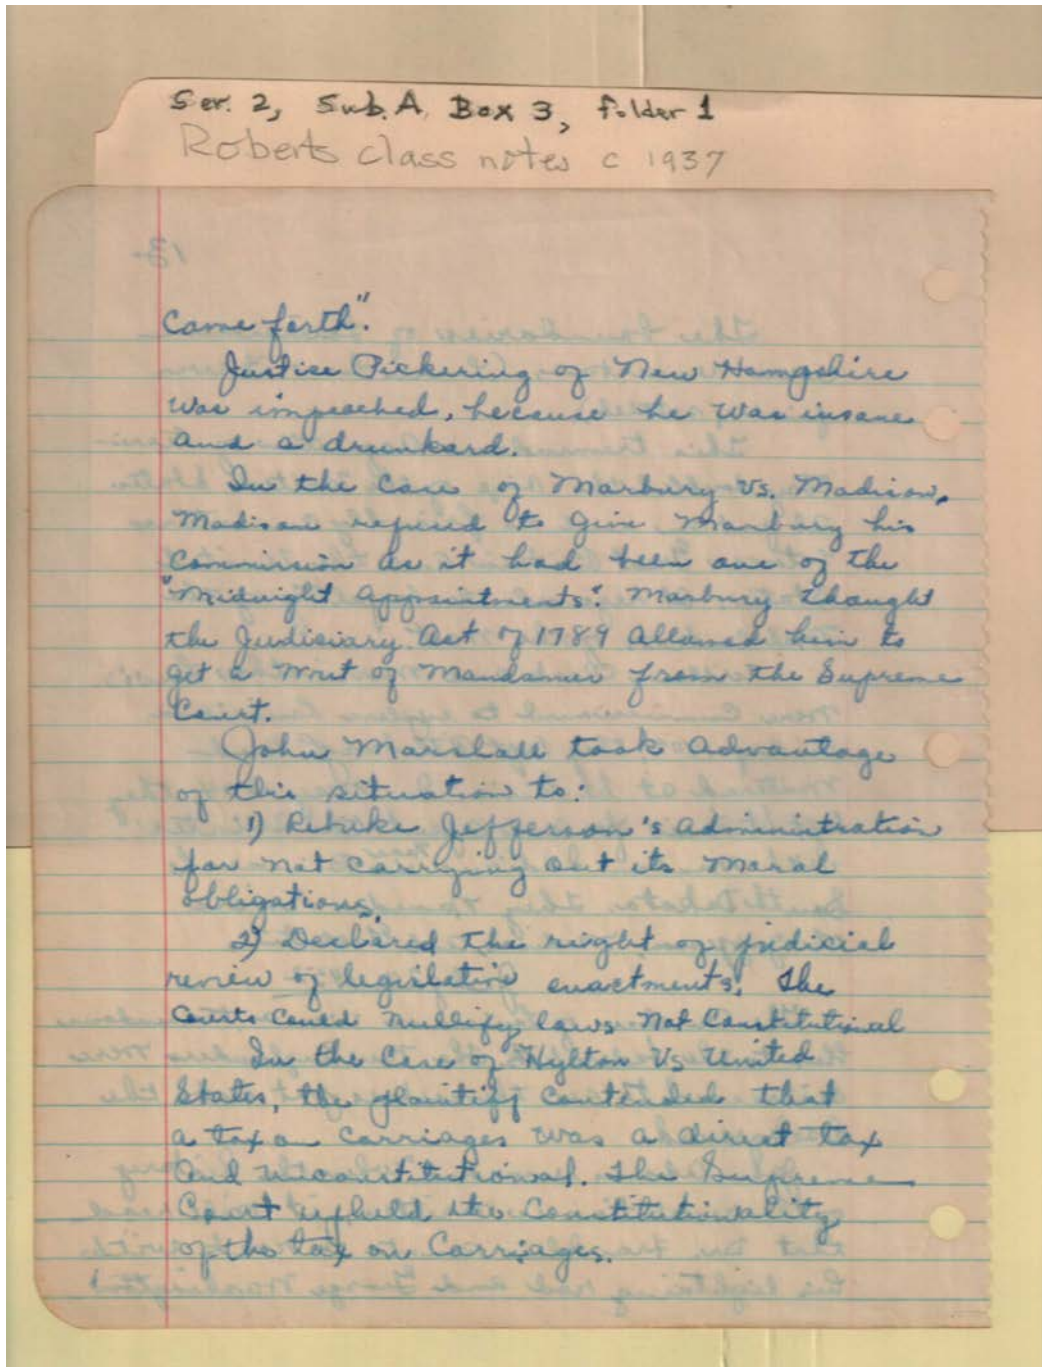 Ser. 2, Sub. A, Box 3, folder 1
Roberts class notes c 1937
13
Came forth".
Justice Pickering of New Hampshire
was impeached, because he was insane
and a drunkard.
In the Case of Marbury vs. Madison,
Madison refused to give Marbury his
Commission as it had been one of the
"Midnight Appointments". Marbury thought
the Judiciary Act of 1789 allowed him to
get a Writ of Mandamus from the Supreme
Court.
John Marshall took advantage
of this situation to:
1) Rebuke Jefferson's administration
for not carrying out its moral
obligations.
2) Declared the right of judicial
review of legislative enactments. The
Courts could nullify laws not Constitutional
In the Case of Hylton Vs United
States, the plaintiff contended that
a tax on Carriages was a direct tax
and unconstitutional. The Supreme
Court upheld the Constitutionality
of the tax on Carriages.